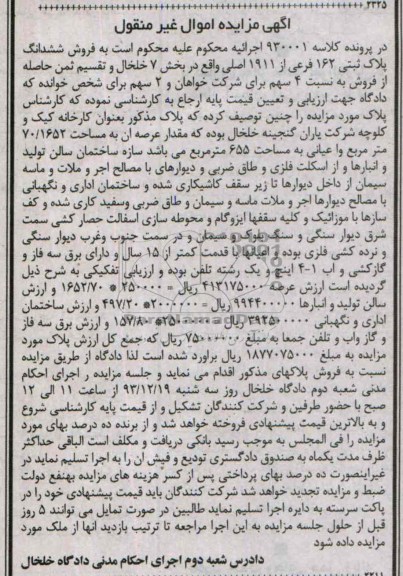 ۲۳۲۵
آگهی مزایده اموال غیر منقول
در پرونده کلاسه ۹۳۰۰۰۱ اجرائیه محکوم علیه محکوم است به فروش ششدانگ
پلاک ثبتی ۱۶۲ فرعی از ۱۹۱۱ اصلی واقع در بخش ۷ خلخال و تقسیم ثمن حاصله
از فروش به نسبت ۴ سهم برای شرکت خواهان و ۲ سهم برای شخص خوانده که
دادگاه جهت ارزیابی و تعیین قیمت پایه ارجاع به کارشناسی نموده که کارشناس
پلاک مورد مزایده را چنین توصیف کرده که پلاک مذکور بعنوان کارخانه کیک و
کلوچه شرکت یاران گنجینه خلخال بوده که مقدار عرصه ان به مساحت ۷۰/۱۶۵۲
متر مربع وا عیانی به مساحت ۶۵۵ مترمربع می باشد سازه ساختمان سالن تولید
و انبارها و از اسکلت فلزی و طاق ضربی و دیوارهای با مصالح اجر و ملات و ماسه
سیمان از داخل دیوارها تا زیر سقف کاشیکاری شده و ساختمان اداری و نگهبانی
با مصالح دیوارها اجر و ملات ماسه و سیمان و طاق ضربی وسفید کاری شده و کف
سازها با موزائیک و کلیه سقفها ایزوگام و محوطه سازی اسفالت حصار کشی سمت
شرق دیوار سنگی و سنگ بلوک و سیمان و در سمت جنوب وغرب دیوار سنگی
و نرده کشی فلزی بوده اعیانها با قدمت کمتر از ۱۵ سال و دارای برق سه فاز و
گازکشی و اب ۱-۴ اینچ و یک رشته تلفن بوده و ارزیابی تفکیکی به شرح ذیل
گردیده است ارزش عرصه ۴۱۳۱۷۵۰۰۰ ریال = ۲۵۰۰۰۰ * ۱۶۵۲/۷۰ و ارزش
سالن تولید و انبارها ۹۹۴۴۰۰۰۰۰ ریال = ۲۰۰۰۰۰۰* ۴۹۷/۲۰ و ارزش ساختمان
اداری و نگهبانی ۳۹۲۵۰۰۰۰۰ ریال =۲۵۰۰۰۰۰* ۱۵۷/۸۰ و ارزش برق سه فاز
و گاز واب و تلفن جمعا به مبلغ ۷۵۰۰۰۰۰۰ ریال که جمع کل ارزش پلاک مورد
مزایده به مبلغ ۱۸۷۷۰۷۵۰۰۰ ریال براورد شده است لذا دادگاه از طریق مزایده
نسبت به فروش پلاکهای مذکور اقدام می نماید و جلسه مزایده ر اجرای احکام
مدنی شعبه دوم دادگاه خلخال روز سه شنبه ۹۳/۱۲/۱۹ از ساعت ۱۱ الی ۱۲
صبح با حضور طرفین و شرکت کنندگان تشکیل و از قیمت پایه کارشناسی شروع
و به بالاترین قیمت پیشنهادی فروخته خواهد شد و از برنده ده درصد بهای مورد
مزایده را فی المجلس به موجب رسید بانکی دریافت و مکلف است الباقی حداکثر
ظرف مدت یکماه به صندوق دادگستری تودیع و فیش ان را به اجرا تسلیم نماید در
غیراینصورت ده درصد بهای پرداختی پس از کسر هزینه های مزایده بهنفع دولت
ضبط و مزایده تجدید خواهد شد شرکت کنندگان باید قیمت پیشنهادی خود را در
پاکت سرسته به دایره اجرا تسلیم نماید طالبین در صورت تمایل می توانند ۵ روز
قبل از حلول جلسه مزایده به این اجرا مراجعه تا ترتیب بازدید انها از ملک مورد
مزایده داده شود
دادرس شعبه دوم اجرای احکام مدنی دادگاه خلخال